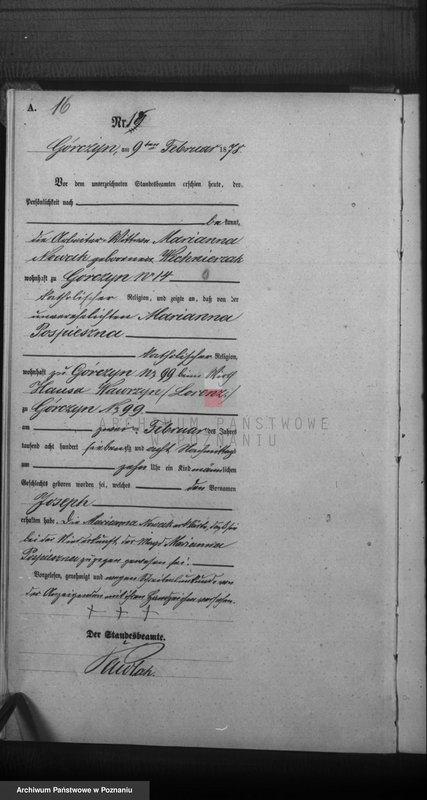 A.
16
Nr. 15
Górczyn, am 9ten Februar 1878
Vor dem unterzeichneten Standesbeamten erschien heute, der
Persönlichkeit nach
bekannt,
die Arbeiter Wittwe Marianna
Nowak geborenen
wohnhaft zu Górczyn No 14
katholischer Religion, und zeigte an, daß von der
unverehelichten Marianna
Pospieszna
katholischer Religion,
wohnhaft zu Górczyn No 99 beim Wirth
Hausa Wawrzyn /Lorenz/
zu Górczyn No 99
am ten Februar des Jahres
tausend acht hundert siebenzig und acht Nachmittag
um zehn Uhr ein Kind männlichen
Geschlechts geboren worden sei, welches den Vornamen
Joseph
erhalten habe. Die Marianna Nowak erklärte, daß sie
bei der Niederkunft der Magd Marianna
Pospieszna zugegen gewesen sei.
Vorgelesen, genehmigt und wegen Schreibensunkunde von
der Anzeigenden mit ihrem Handzeichen versehen.
+ + +
Der Standesbeamte.
Pawlak.
ARCHIWUM PAŃSTWOWE
W POZNANIU
Archiwum Państwowe w Poznaniu